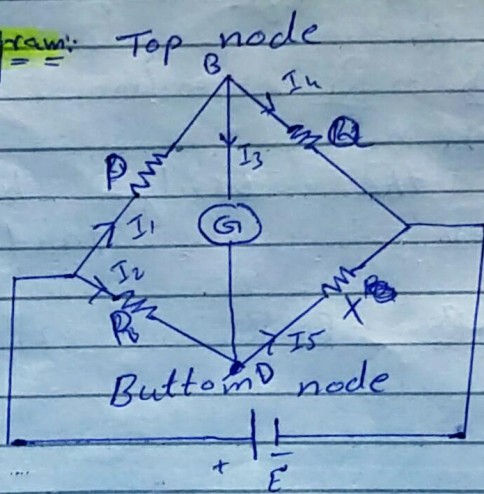 ram:
Top node
B
I4
P
I3
G
I1
I2
X
I5
D
Buttom node
+ -
E